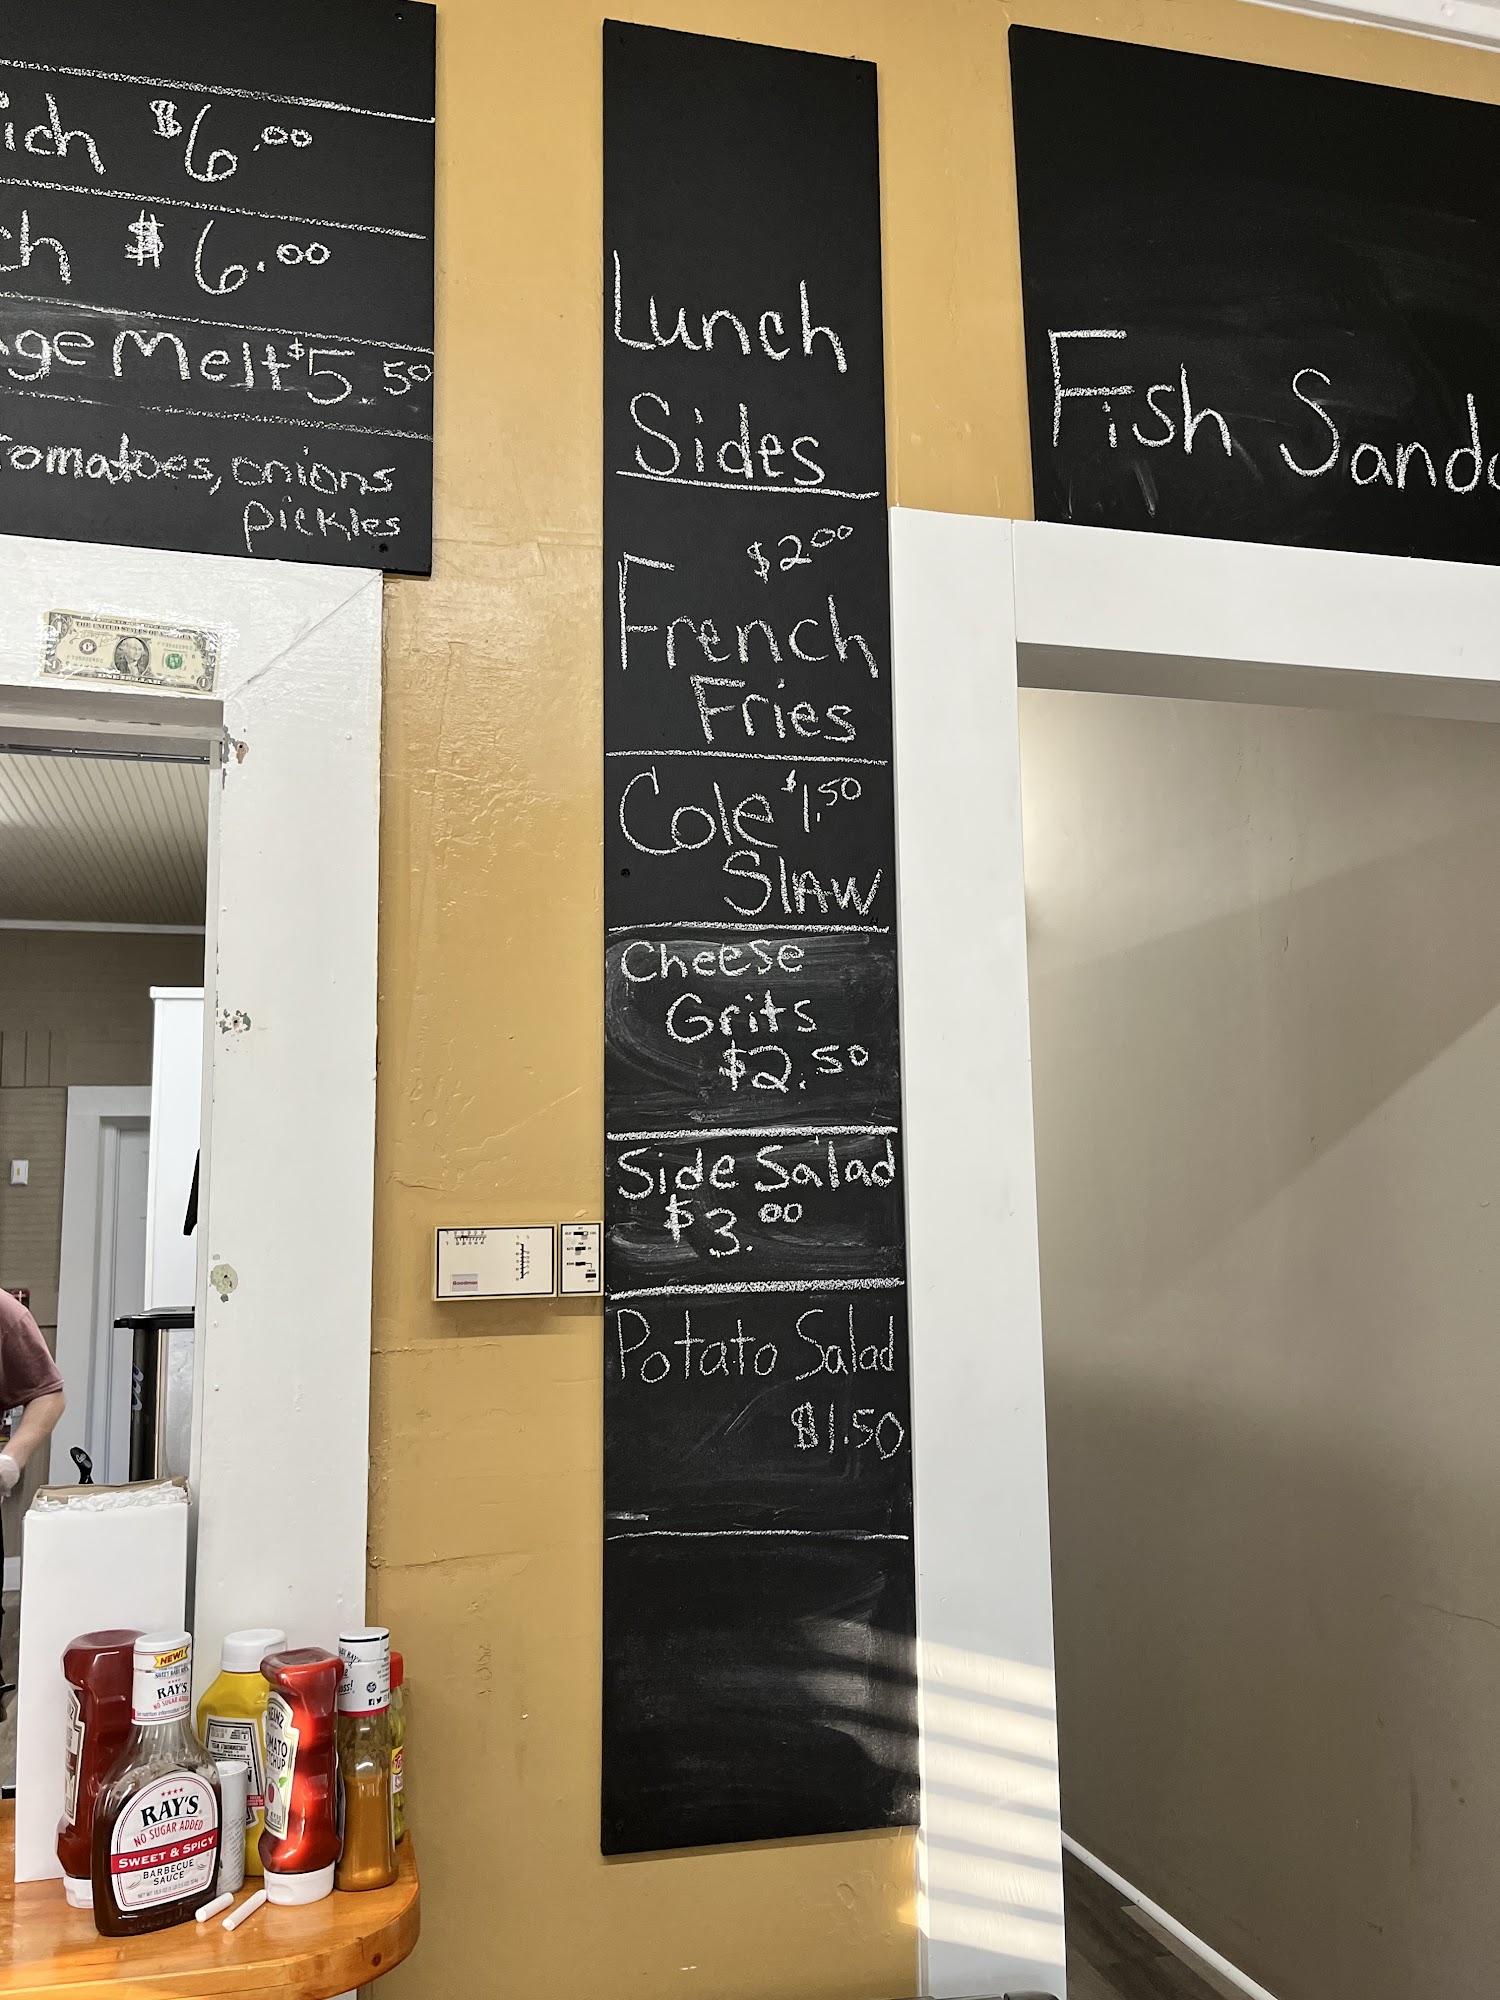 ich $6.00
ch $6.00
ge Melt $5.50
Tomatoes, onions
pickles
Lunch
Sides
$2.00
French
Fries
Cole $1.50
Slaw
Cheese
Grits
$2.50
Side Salad
$3.00
Potato Salad
$1.50
Fish Sand
THE UNITED STATES OF AMERICA
ONE DOLLAR
Goodman
NEW!
SWEET BABY RAY'S
RAY'S
NO SUGAR ADDED
RAY'S
NO SUGAR ADDED
SWEET & SPICY
BARBECUE
SAUCE
HEINZ
TOMATO
KETCHUP